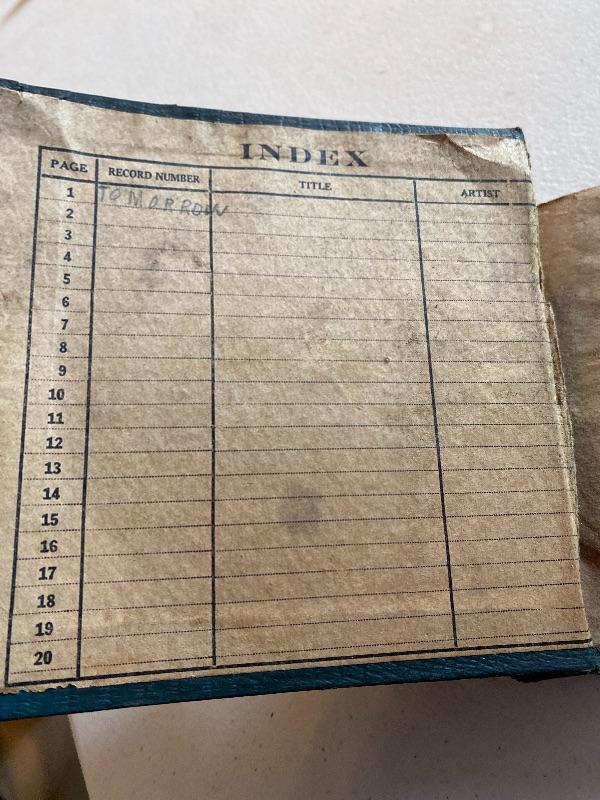 INDEX
PAGE RECORD NUMBER TITLE ARTIST
1 TOMORROW
2
3
4
5
6
7
8
9
10
11
12
13
14
15
16
17
18
19
20